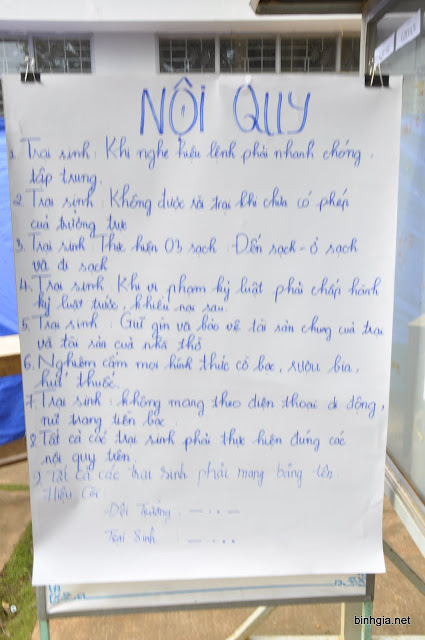 NỘI QUY
1. Trại sinh: Khi nghe hiệu lệnh phải nhanh chóng,
tập trung.
2. Trại sinh: Không được rời trại khi chưa có phép
của trưởng trực
3. Trại sinh: Thực hiện 03 sạch: Đến sạch - ở sạch
và đi sạch
4. Trại sinh: Khi vi phạm kỷ luật phải chấp hành
kỷ luật trước, khiếu nại sau.
5. Trại sinh: Giữ gìn và bảo vệ tài sản chung của trại
và tài sản của nhà thờ
6. Nghiêm cấm mọi hình thức cờ bạc, rượu bia,
hút thuốc.
7. Trại sinh: không mang theo điện thoại di động,
nữ trang tiền bạc.
8. Tất cả các trại sinh phải thực hiện đúng các
nội quy trên.
9. Tất cả các trại sinh phải mang bảng tên.
Hiệu Còi:
-Đội Trưởng: — . . —
Trại Sinh : — . . .
binhgia.net